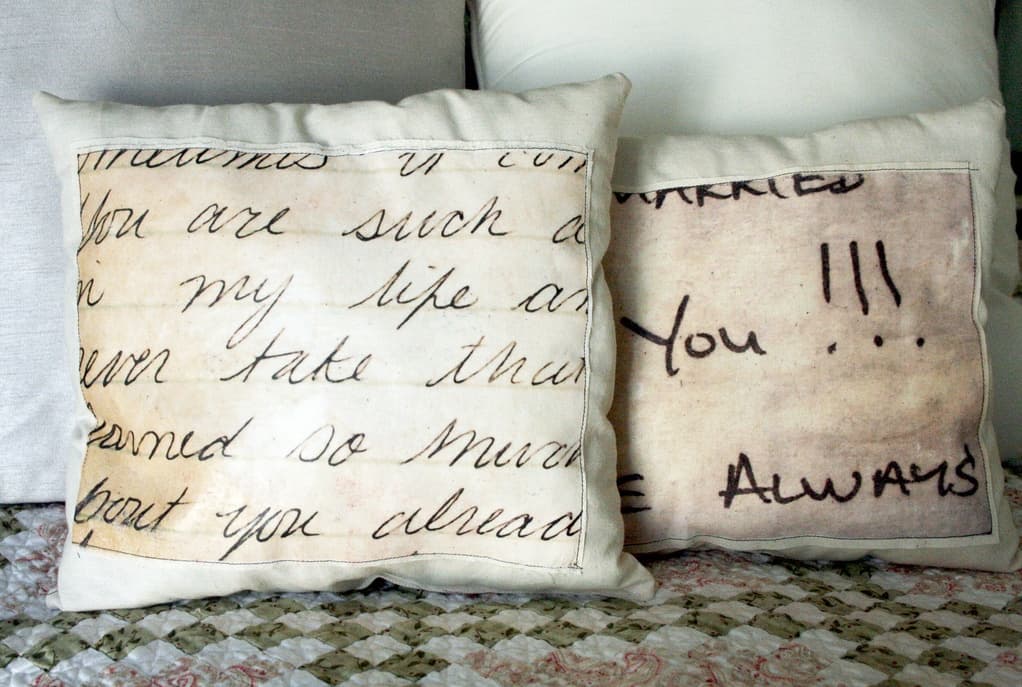 You are such a
my life an
ever take that
so much
bout you alread
MARRIED
!!!
You ...
E ALWAYS